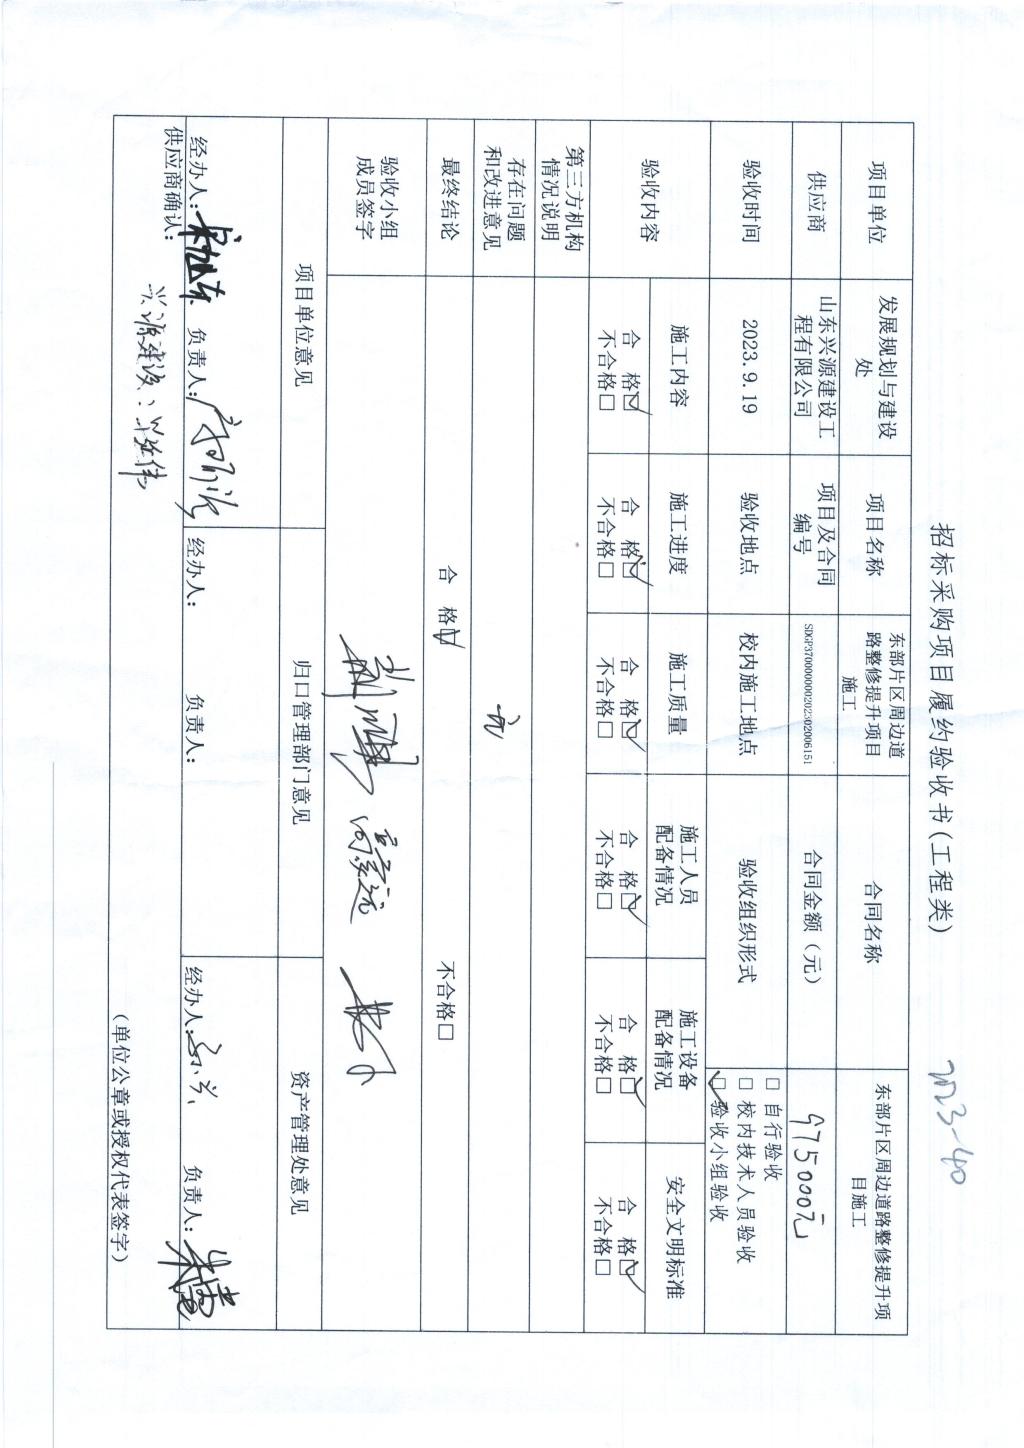 招标采购项目履约验收书(工程类)
2023-40
项目单位
发展规划与建设
处
项目名称
东部片区周边道
路整修提升项目
施工
合同名称
东部片区周边道路整修提升项
目施工
供应商
山东兴源建设工
程有限公司
项目及合同
编号
SDGP370000000202302006151
合同金额（元）
9750000元
验收时间
2023.9.19
验收地点
校内施工地点
验收组织形式
□ 自行验收
□ 校内技术人员验收
☑ 验收小组验收
验收内容
施工内容
施工进度
施工质量
施工人员
配备情况
施工设备
配备情况
安全文明标准
合 格☑
不合格□
合 格☑
不合格□
合 格☑
不合格□
合 格☑
不合格□
合 格☑
不合格□
合 格☑
不合格□
第三方机构
情况说明
存在问题
和改进意见
无
最终结论
合 格☑
不合格□
验收小组
成员签字
项目单位意见
归口管理部门意见
资产管理处意见
经办人:
负责人:
经办人:
负责人:
经办人:
负责人:
供应商确认:
兴源建设:
(单位公章或授权代表签字)